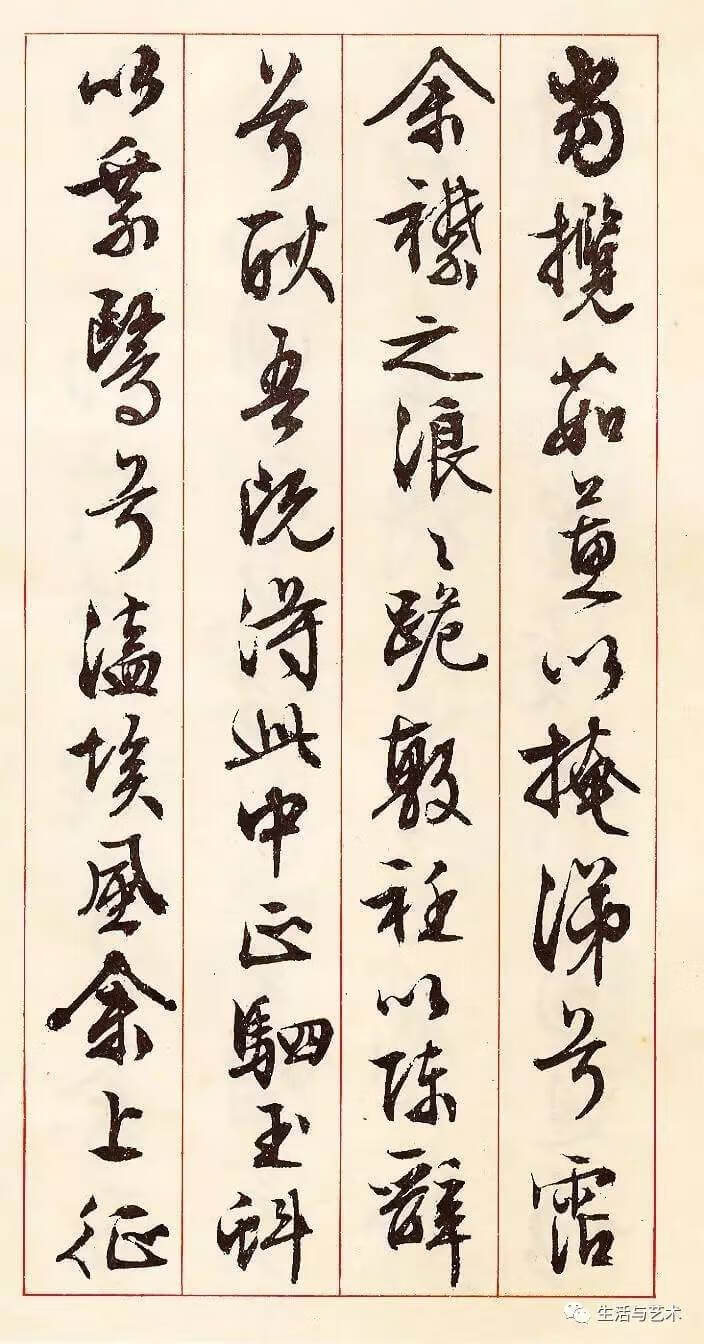 當攬茹蕙以掩涕兮霑
余襟之浪〻跪敷衽以陳辭
兮耿吾既得此中正駟玉虯
以椉鷖兮溘埃風余上征
生活与艺术